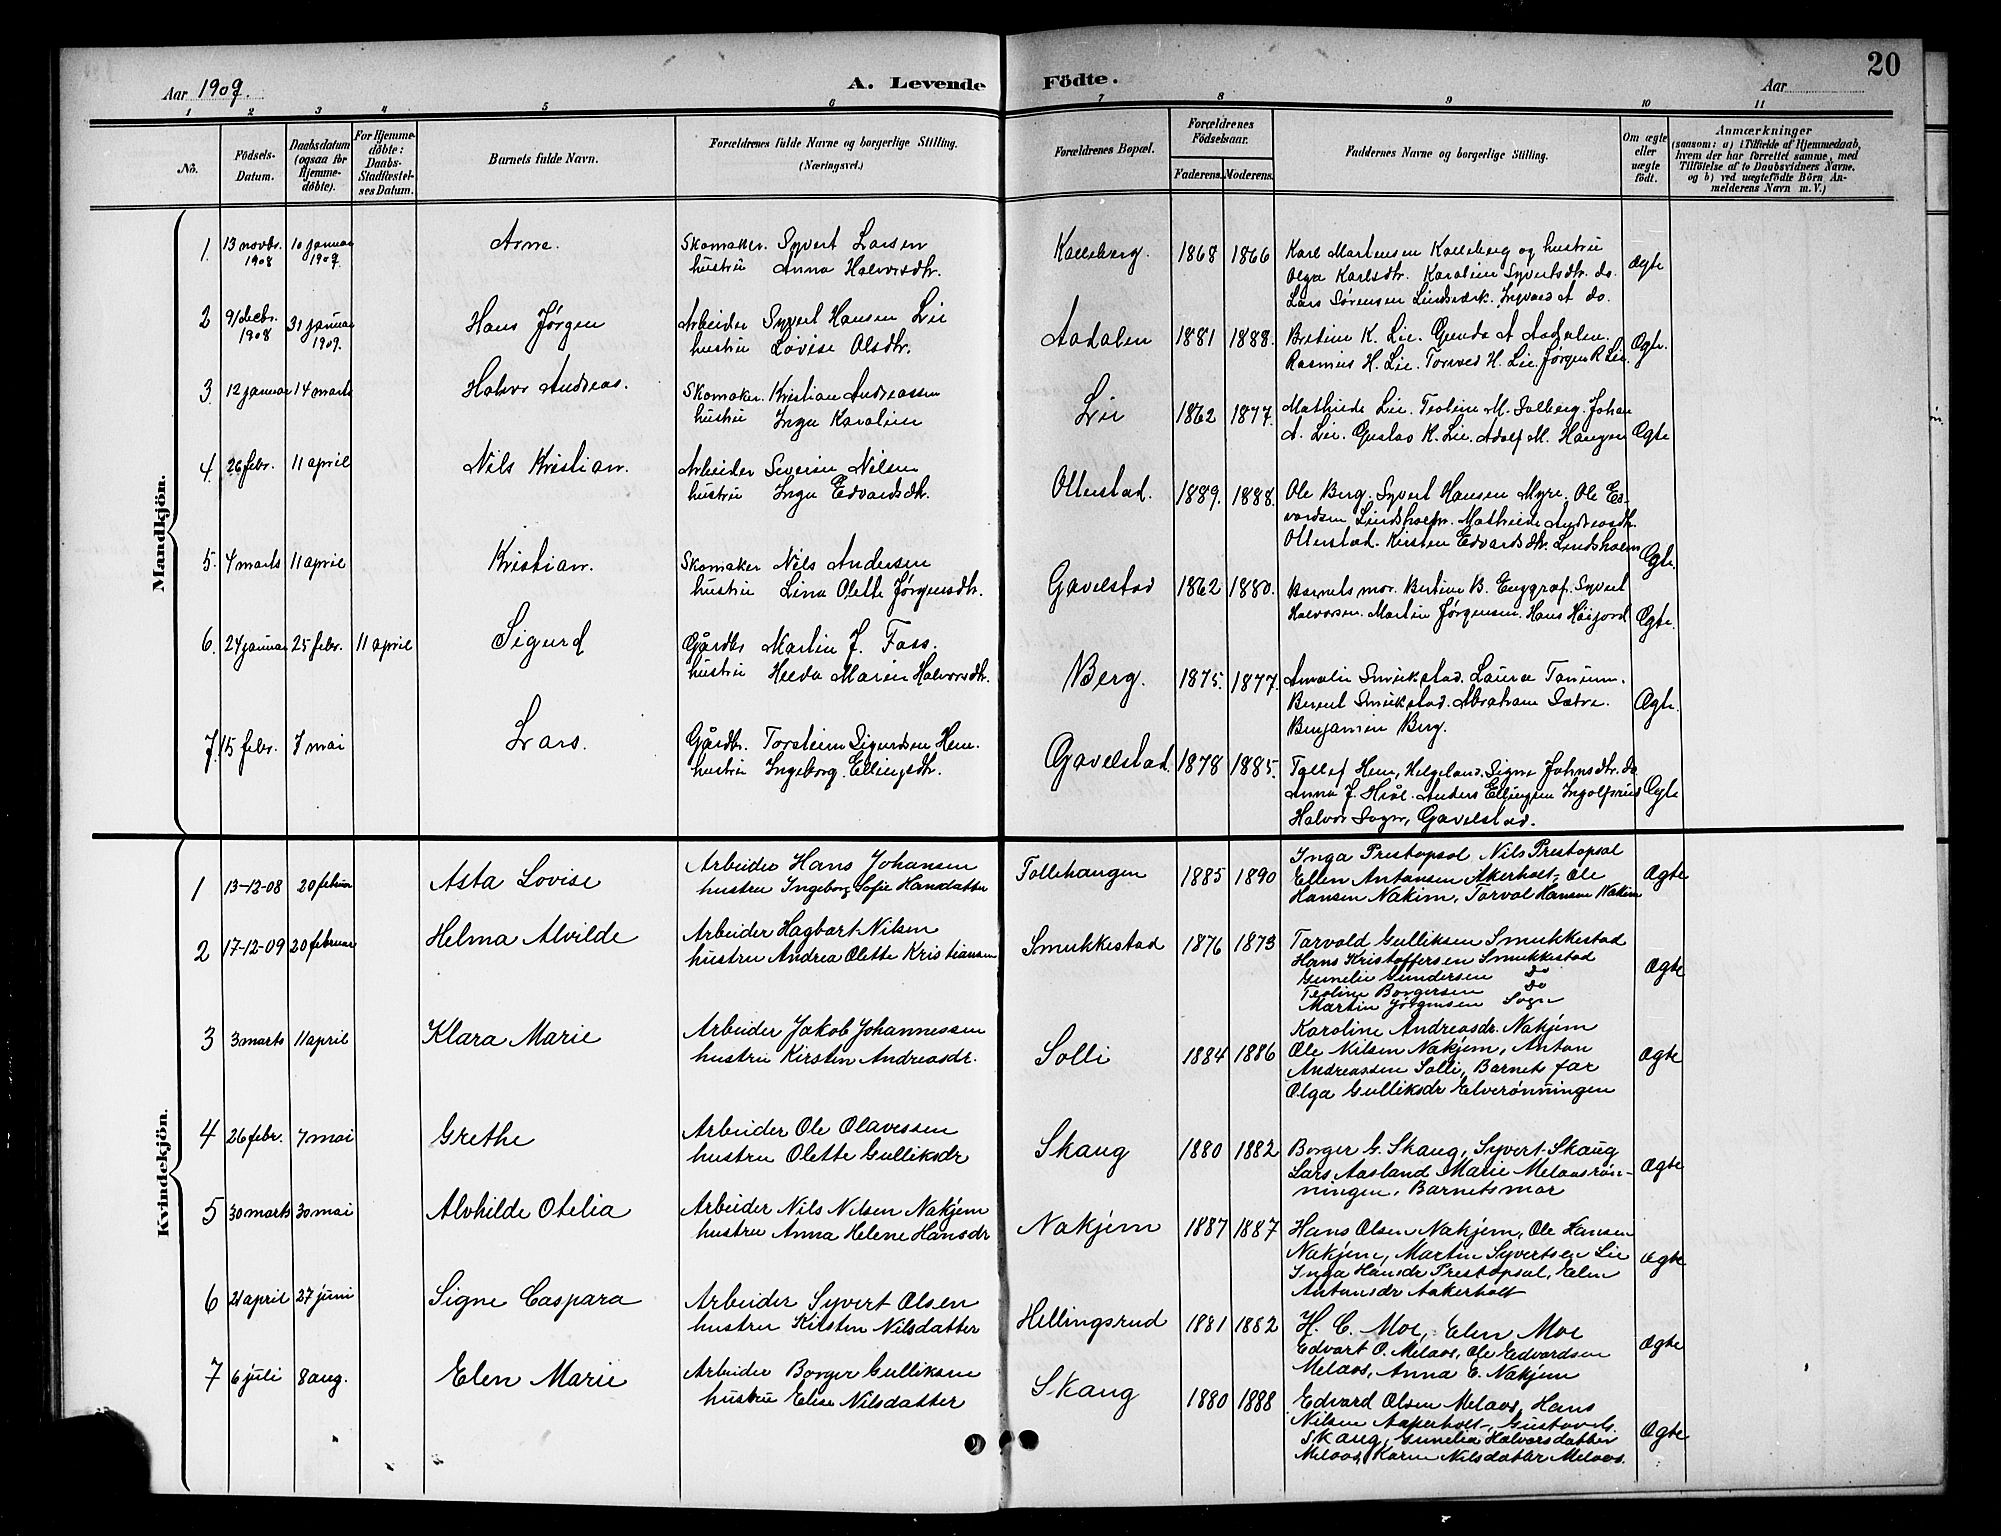 20
Aar 1909.
A. Levende Födte.
Aar
1 2 3 4 5 6 7 8 9 10 11
No.
Födsels-Datum.
Daabsdatum (ogsaa for Hjemme-döbte).
For Hjemme-döbte: Daabs-Stadfæstel-ses Datum.
Barnets fulde Navn.
Forældrenes fulde Navne og borgerlige Stilling. (Næringsvei.)
Forældrenes Bopæl.
Forældrenes Födselsaar.
Faderens. Moderens.
Faddernes Navne og borgerlige Stilling.
Om ægte eller uægte födt.
Anmærkninger
(saasom: a) i Tilfælde af Hjemmedaab, hvem der har forrettet samme, med Tilföielse af to Daabsvidners Navne. og b) ved uægtefödte Börn An-melderens Navn m. V.)
Mandkjön.
1. 13 novbr. 1908 10 januar 1909. Arne. Skomaker. Syvert Larsen
hustru Anna Halvorsdtr.
Kalleberg. 1868 1866 Karl Martensen Kalleberg og hustru
Olga Karlsdtr. Karoline Syvertsdtr. do.
Lars Sørensen Lindsverk. Ingvald A do.
Ægte
2 9/decbr. 1908 31 januar 1909. Hans Jørgen Arbeider Syvert Hansen Lie
hustru Lovise Olsdtr.
Aadalen 1881 1888. Bredine K. Lie. Gunda A Aadalen.
Rasmus H. Lie. Torvald H. Lie. Jørgen R Lie.
Ægte.
3. 12 januar 14 marts Halvor Andreas. Skomaker. Kristian Andreassen
hustru Inga Karoline
Lie 1862 1877. Mathilde Lie. Teoline M. Solberg. Johan
A. Lie. Gustav K. Lie. Adolf M. Haugen
Ægte
4. 26 febr. 11 april Nils Kristian. Arbeider Severin Nilsen
hustru Inga Edvardsdtr.
Ollerstad. 1889. 1888. Ole Berg. Syvert Hansen Myre. Ole Ed-
vardsen Lindsholm. Mathilde Andreasdtr.
Ollerstad. Kirsten Edvardsdtr. Lindsholm
Ægte.
5. 4 marts 11 april Kristian. Skomaker Nils Andersen
hustru Lina Olette Jørgensdtr.
Gavelstad 1862 1880. Barnets mor. Bertine B. Enggraf. Syvert
Halvorsen. Martin Jørgensen. Hans Høijord
Ægte.
6. 24 januar 25 febr. 11 april Sigurd Gårdbr Martin J. Fass.
hustru Helda Marie Halvorsdtr.
Berg. 1875. 1877. Amalie Smukstad. Laura Tanum.
Bernt Smukstad. Abraham Sætre.
Benjamin Berg.
Ægte.
7. 15 febr. 7 mai Lars. Gårdbr. Torstein Sigurdsen Hem.
hustru Ingeborg Ellingsdtr.
Gavelstad. 1878 1885. Tallef Hem, Helgeland. Signe Johnsdtr. do
Anna J. Hvål. Anders Ellingsen Ingolfsrud
Halvor Sogn, Gavelstad.
Ægte
Kvindekjön.
1 13-12-08 20 februar Asta Lovise Arbeider Hans Johansen
hustru Ingeborg Sofie Hansdatter
Tollehaugen 1885 1890 Inga Prestopsal Nils Prestopsal
Ellen Antonsen Akerholt, Ole
Hansen Nakim, Torval Hansen Nakim
Ægte
2 17-12-09 20 februar Helma Alvilde Arbeider Hagbart Nilsen
hustru Andrea Olette Kristiansen
Smukkestad 1876 1873 Tarvald Gulliksen Smukkestad
Hans Kristoffersen Smukkestad
Gunelie Gundersen Do
Teoline Borgersen Do
Martin Jørgensen Sogn
Ægte
3 3 marts 11 april Klara Marie Arbeider Jakob Johannessen
hustru Kirsten Andreasdr.
Solli 1884 1886 Karoline Andreasdr. Nakjem
Ole Nilsen Nakjem, Anton
Andreassen Solli, Barnet far
Olga Gulliksdr Elverønningen
Ægte
4 26 febr. 7 mai Grethe Arbeider Ole Olavessen
hustru Olette Gulliksdr
Skaug 1880 1882 Borger G. Skaug, Syvert Skaug
Lars Aasland Marie Melaasrøn-
ningen, Barnets mor
Ægte
5 30 marts 30 mai Alvhilde Otelia Arbeider Nils Nilsen Nakjem
hustru Anna Helene Hansdr
Nakjem 1887 1887 Hans Olsen Nakjem, Ole Hansen
Nakjem, Martin Syvertsen Lie
Inga Hansdr Prestopsal, Elen
Antonsdr Aakerholt
Ægte
6 21 april 27 juni Signe Caspara Arbeider Syvert Olsen
hustru Kirsten Nilsdatter
Hellingsrud 1881 1882 H. C. Moe, Elen Moe
Edvart O. Melaas, Ole Edvardsen
Melaas, Anna E. Nakjem
Ægte
7 6 juli 8 aug. Elen Marie Arbeider Borger Gulliksen
hustru Elise Nilsdatter
Skaug 1880 1888 Edvard Olsen Melaas, Hans
Nilsen Aakerholt, Gustav N.
Skaug, Gunelia Halvorsdatter
Melaas, Karen Nilsdatter Melaas.
Ægte